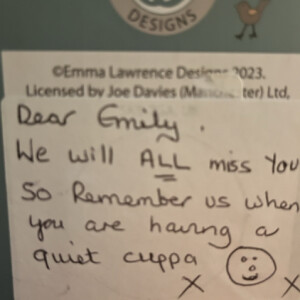 DESIGNS
©Emma Lawrence Designs 2023.
Licensed by Joe Davies (Manchester) Ltd,
Dear Emily.
We will ALL miss you
So Remember us when
you are having a
quiet cuppa
x x